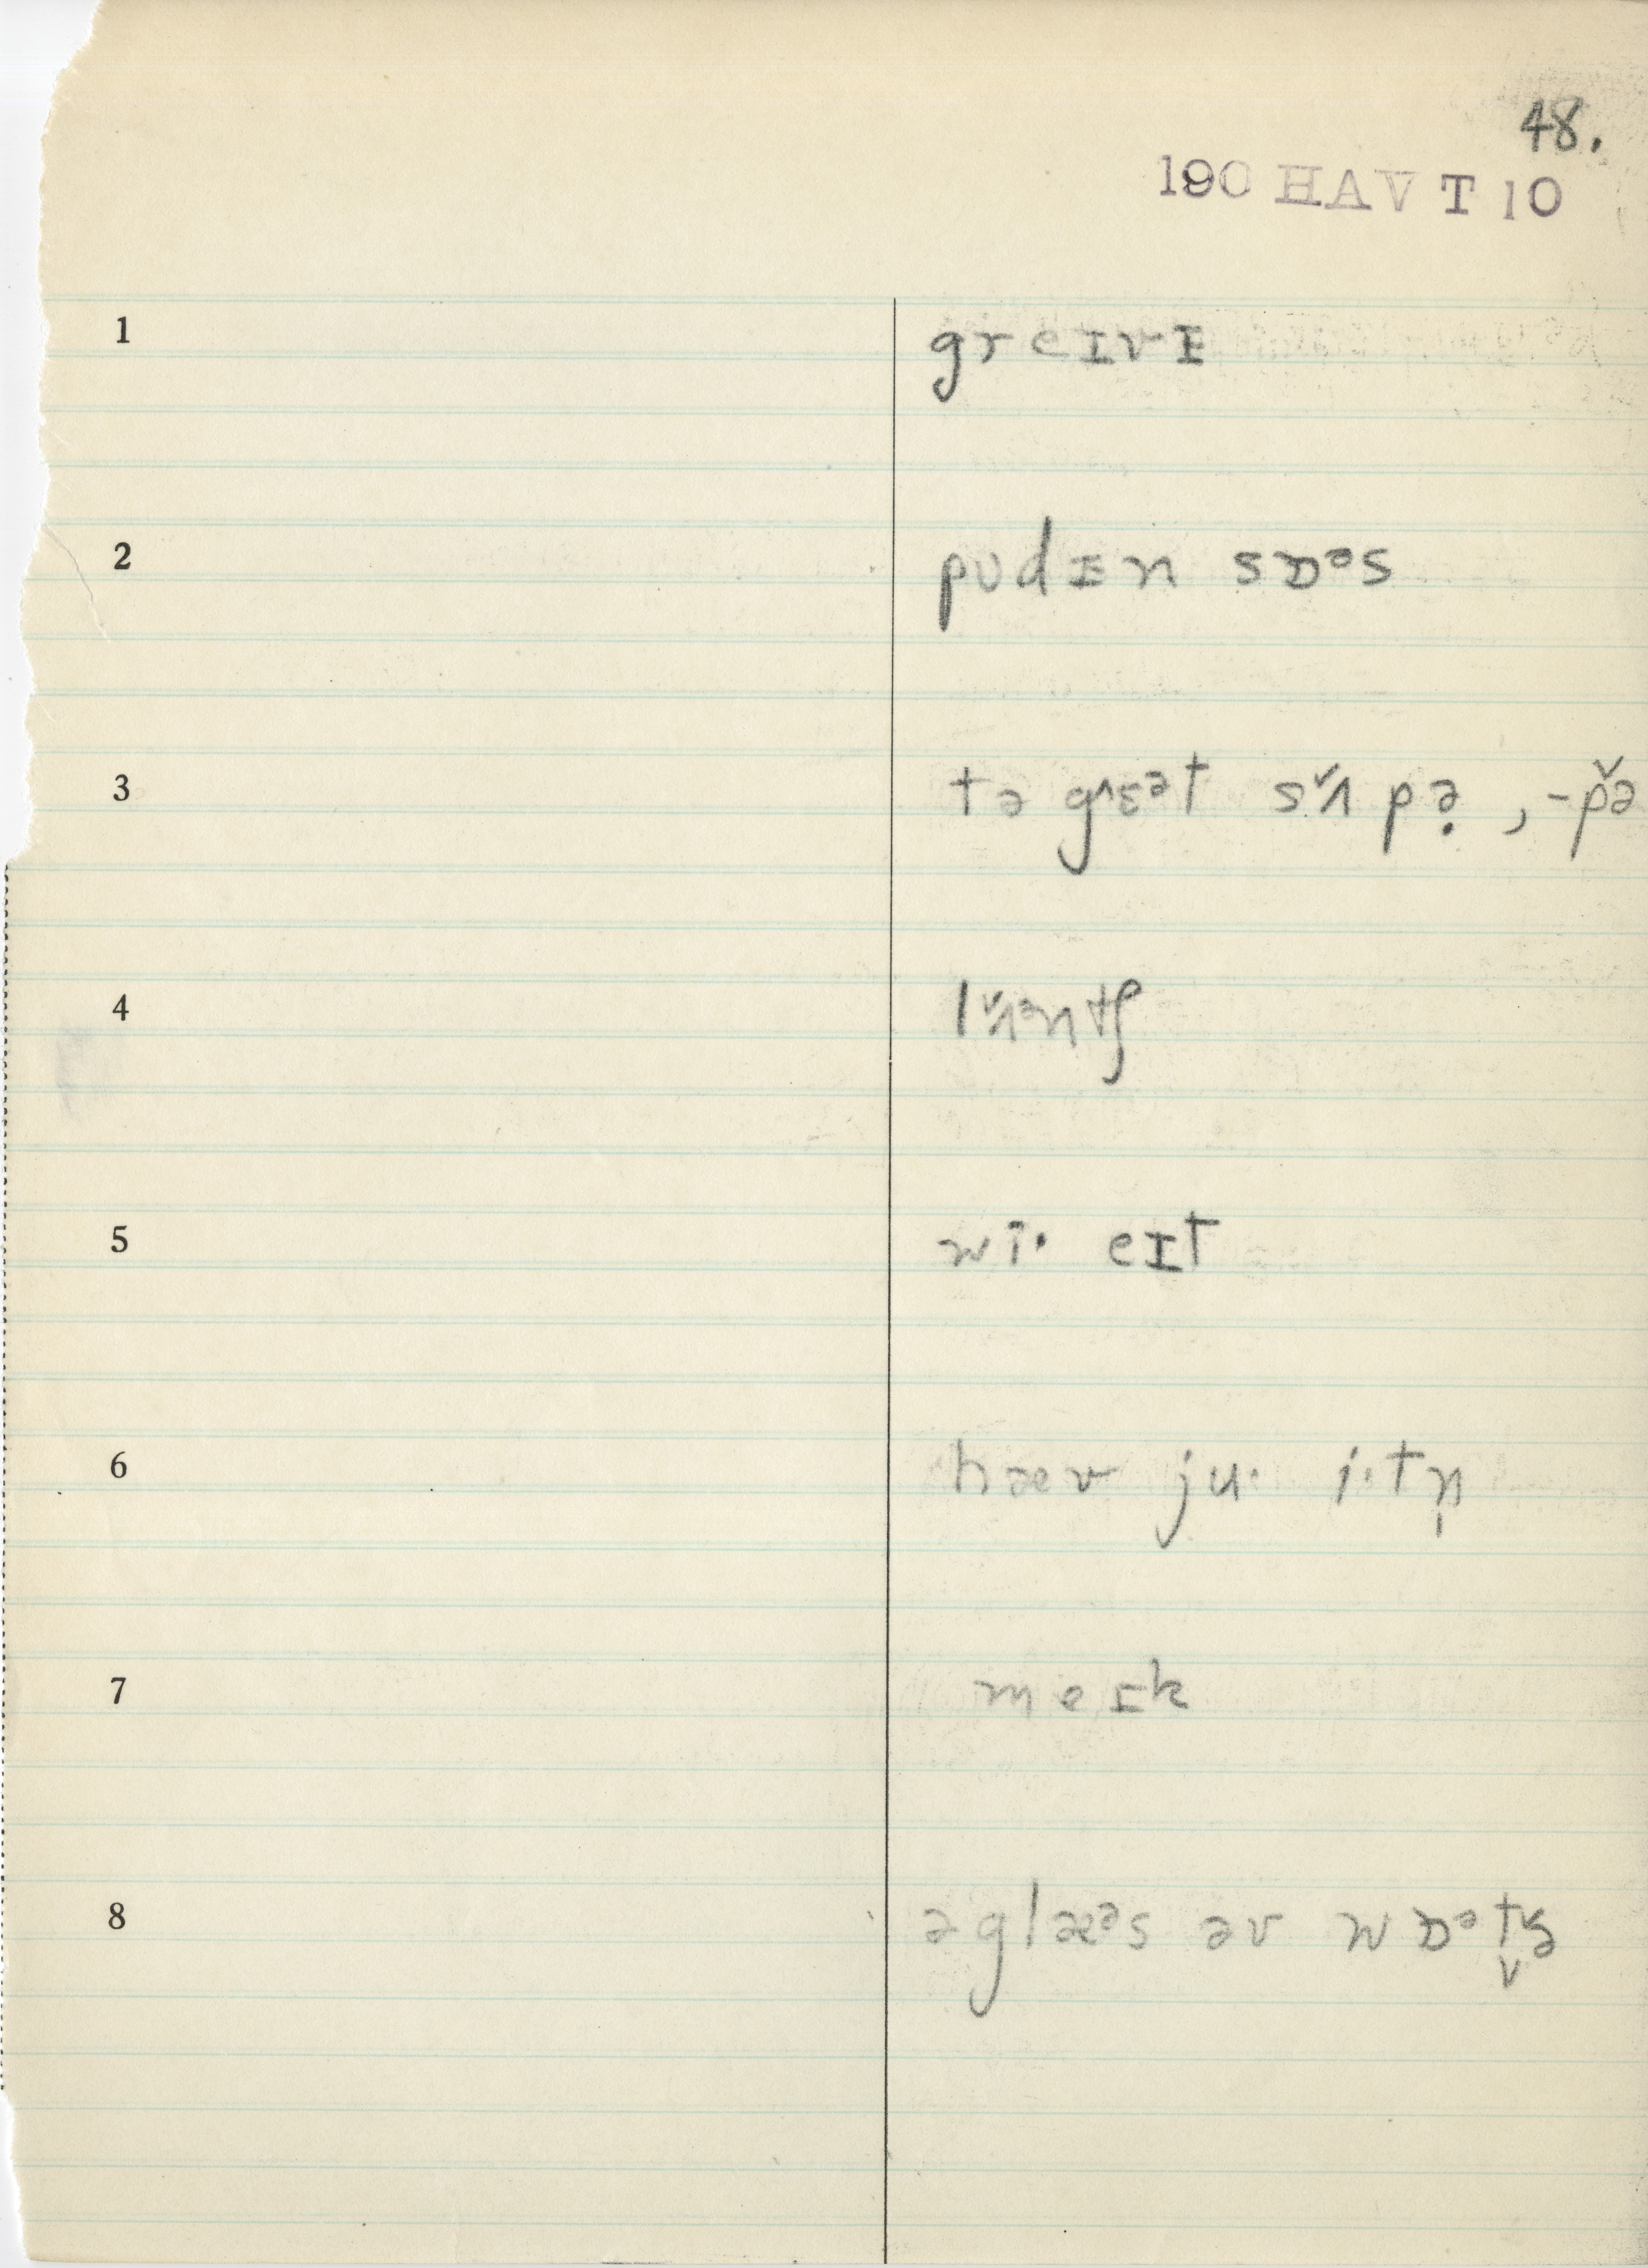 48.
190 HAV T 10
1 greɪvɪ
2 pudɪn sɒᵊs
3 tə grɛᵊt sʌ̌pə̣, -pə̌
4 lʌ̌ᵊntʃ
5 wi· eɪt
6 hæv ju· i·tn̩
7 meɪk
8 əglæᵊs əv wɒᵊt̬ə